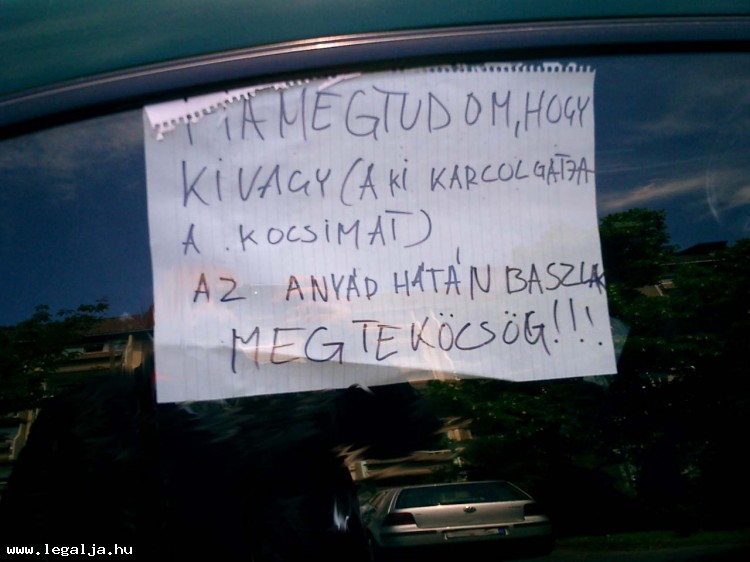 HA MEGTUDOM, HOGY
KI VAGY (AKI KARCOLGATJA
A KOCSIMAT)
AZ ANYÁD HÁTÁN BASZLAK
MEG TE KÖCSÖG!!!
www.legalja.hu